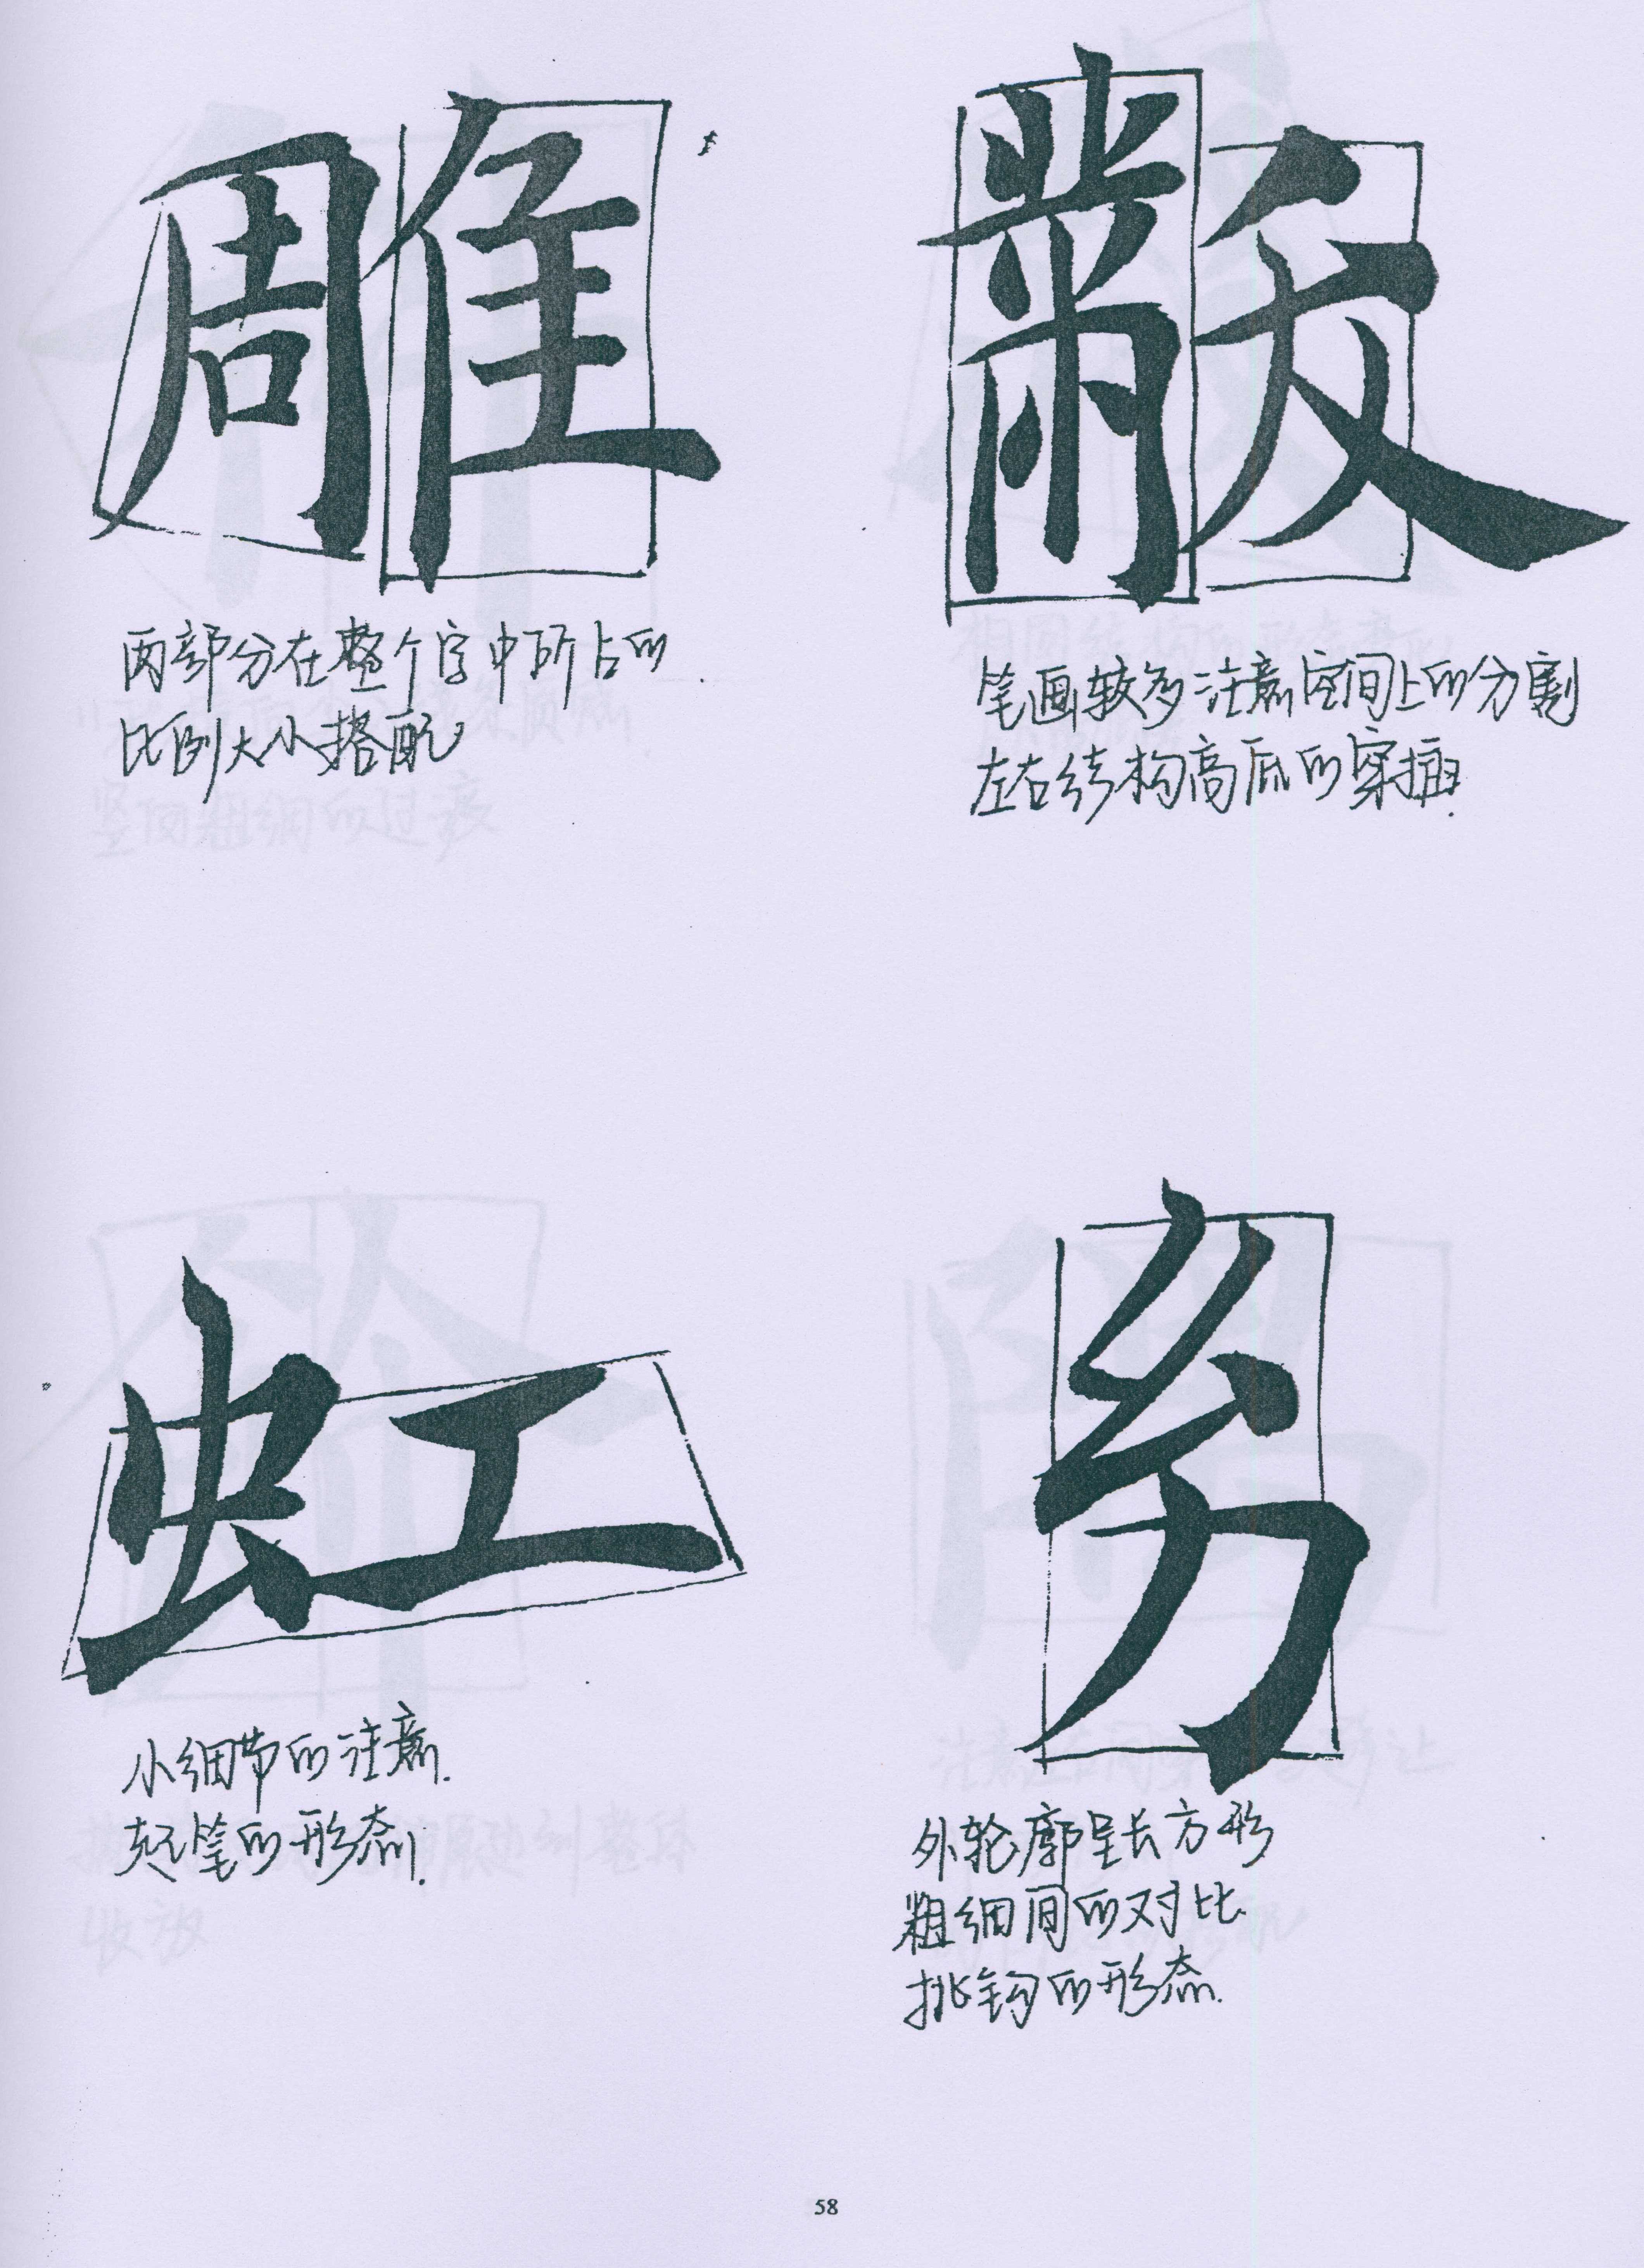 雕
两部分在整个字中所占的
比例大小搭配
黻
笔画较多注意空间上的分割
左右结构高底的穿插.
虹
小细节的注意.
起笔的形态.
外轮廓呈长方形
粗细间的对比.
挑钩的形态.
58